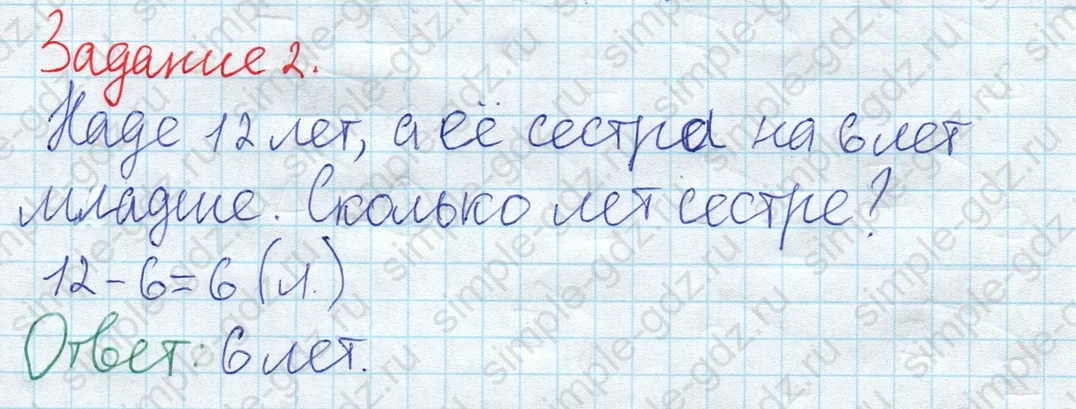 Задание 2.
Наде 12 лет, а её сестра на 6 лет
младше. Сколько лет сестре?
12 - 6 = 6 (л.)
Ответ: 6 лет.
simple-gdz.ru